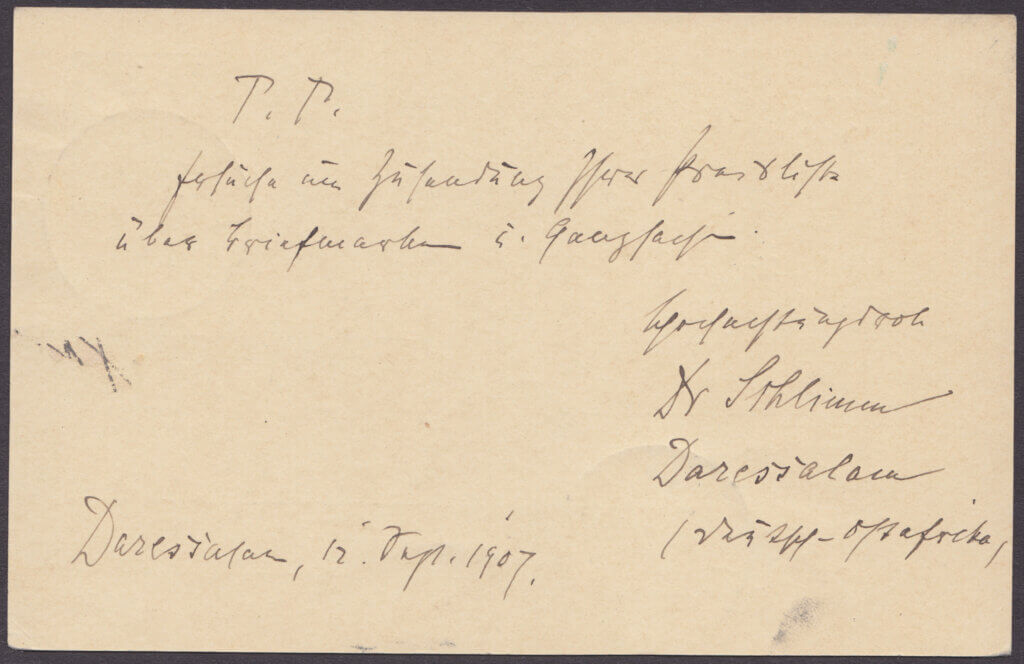 P. P.
Ersuche um Zusendung Ihrer Preisliste
über Briefmarken u. Ganzsachen.
Hochachtungsvoll
Dr Schlimm
Daressalam
(Deutsch-Ostafrika)
Daressalam, 12. Sept. 1907.